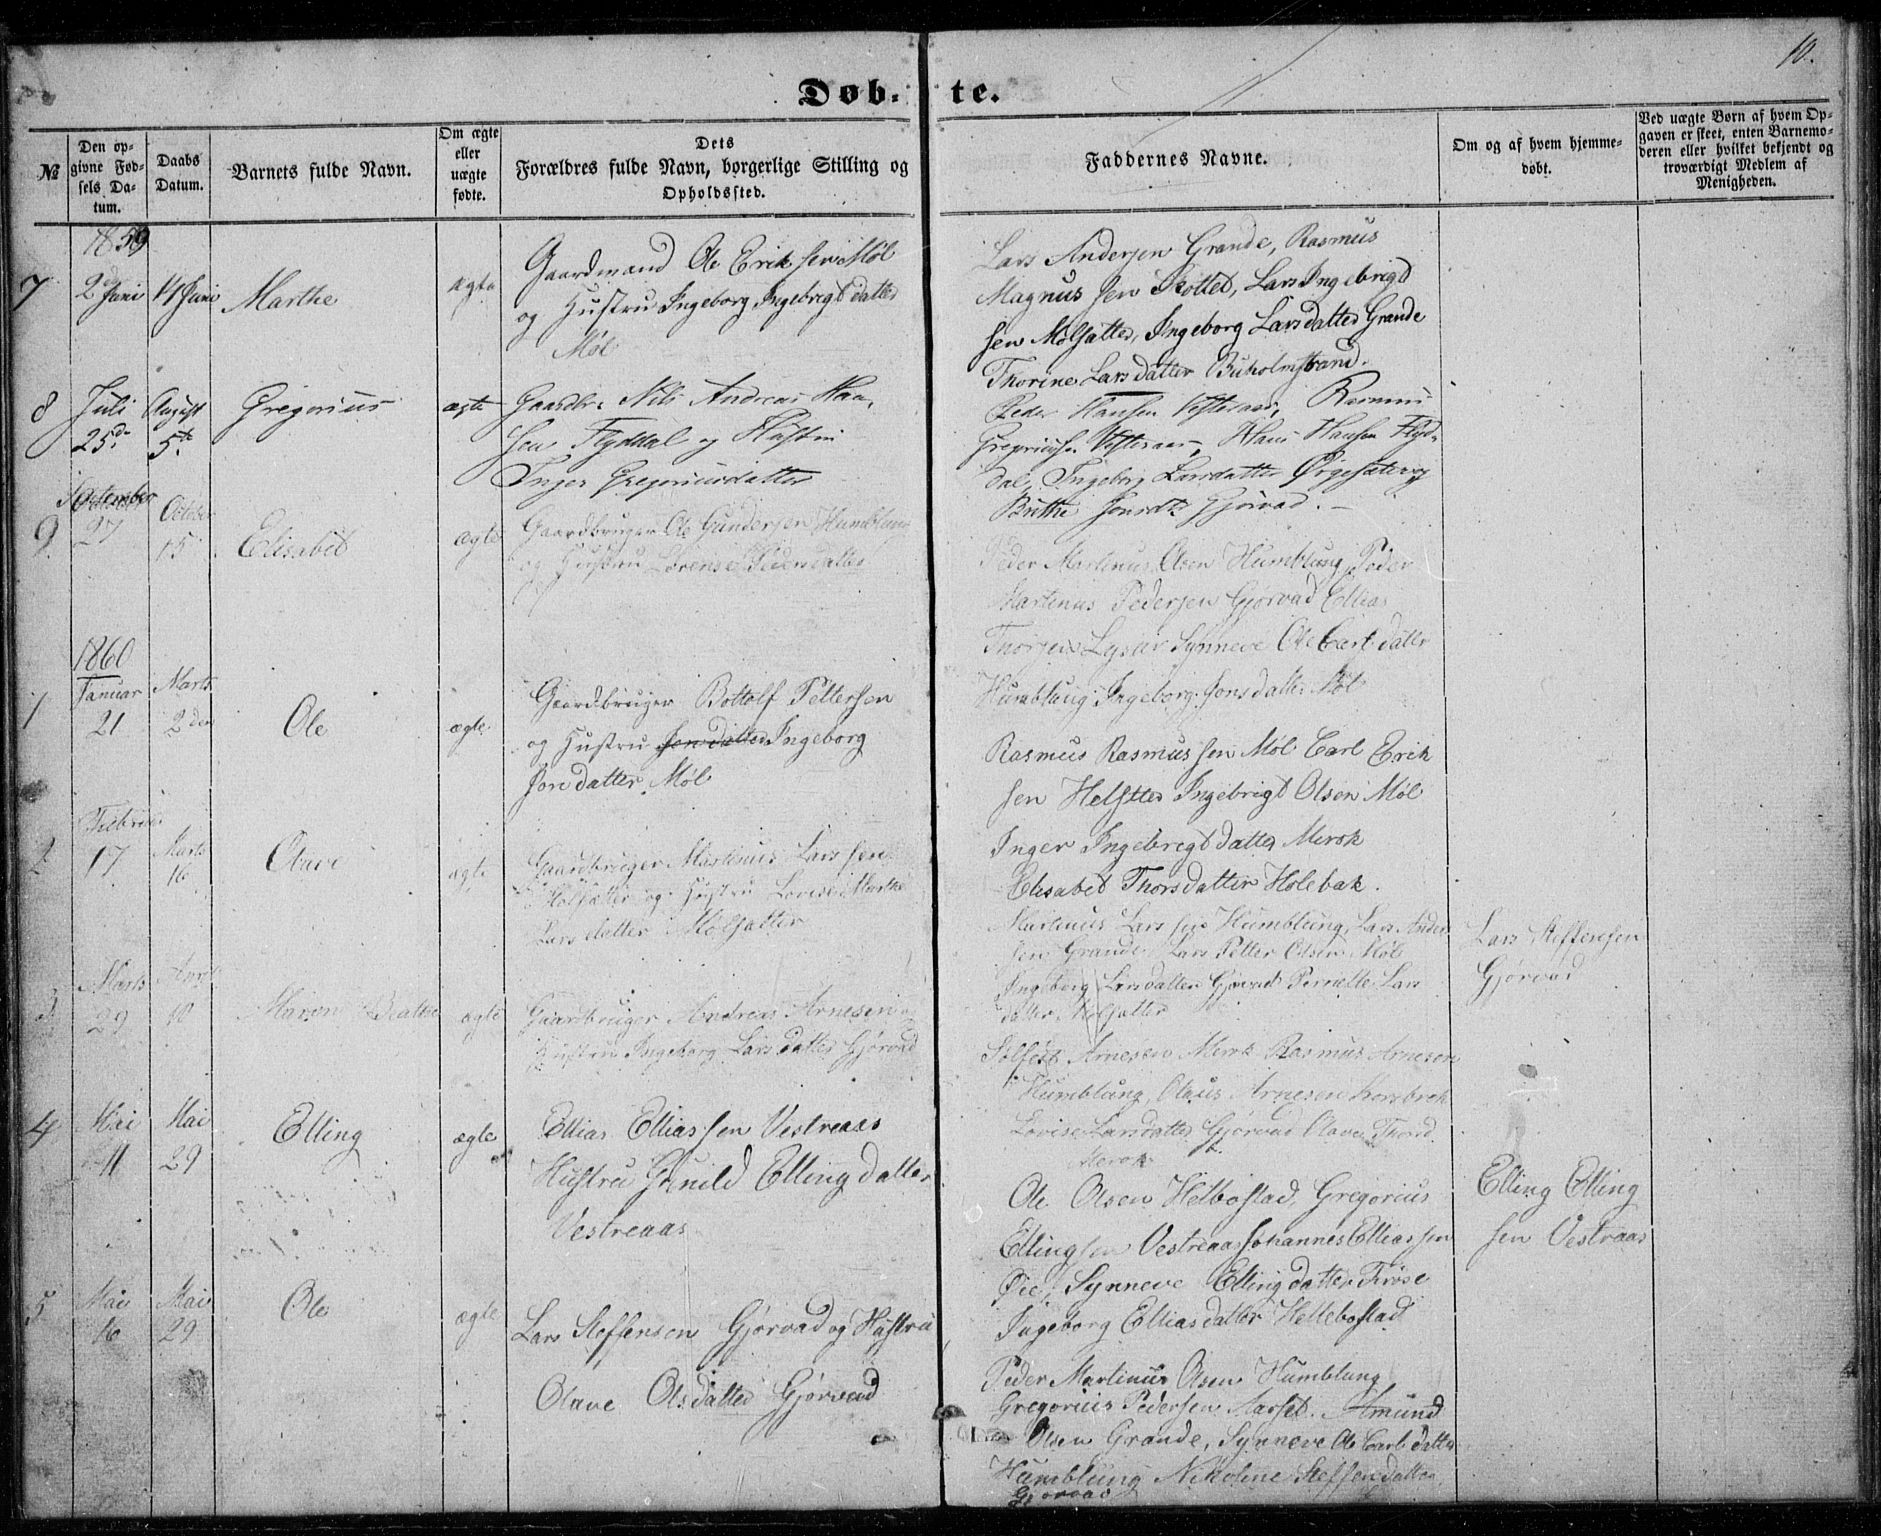 10.
Døb-te.
№
Den opgivne Fødsels Datum.
Daabs Datum.
Barnets fulde Navn.
Om ægte eller uægte fødte.
Dets Forældres fulde Navn, borgerlige Stilling og Opholdssted.
Faddernes Navne.
Om og af hvem hjemmedøbt.
Ved uægte Børn af hvem Opgaven er skeet, enten Barnemoderen eller hvilket bekjendt og troværdigt Medlem af Menigheden.
1859
7
2 Juni
14 Juni
Marthe
ægte
Gaardmand Ole Eriksen Møl
og Hustru Ingeborg Ingebrigtdatter
Møl
Lars Andersen Grande, Rasmus
Magnus sen Skottet, Lars Ingebrigt
sen Mølsætter, Ingeborg Larsdatter Grande
Thorine Larsdatter Buholmstrand.
8
Juli
25de
August
5te
Gregorius
ægte
Gaardbr. Nils Andreas Han,
sen Flydal og Hustru
Inger Gregoriusdatter
Peder Hansen Vesteraas, Rasmus
Gregoriuss. Vesteraas, Hans Hansen Flyd-
dal, Ingeborg Larsdatter Ørgesæter og
Brithe Jonsdt. Gjørvad.
9
September
27
October
15
Elisabet
ægte
Gaardbruger Ole Gundersen Humblung
og Hustru Lorense
Peder Martinus Olsen Humblung, Peder
Martinus Pedersen Gjørvad Ellias
Synneve Ole Carl datter
Humblung Ingeborg Jonsdatter Møl
1860
1
Januar
21
Marts
2den
Ole
ægte
Gaardbruger Bottolf Pettersen
og Hustru Jonsdatter Ingeborg
Jonsdatter Møl
Rasmus Rasmussen Møl Carl Erik
sen Helsetter Ingebrigt Olsen Møl
Inger Ingebrigtdatter Merok
Elisabet Thorsdatter Holebak.
2
Februar
17
Marts
16
Olave
ægte
Gaardbruger Martinus Larssen
Mølsætter og Hustru Lovise Marthe
Larsdatter Mølsætter
Martinus Larssen Humblung, Lars Ander
sen Grande Lars Petter Olsen Møl
Ingeborg Larsdatter Gjørvad Pernille Lars
datter Mølsætter
Lars Steffensen
Gjørvad
3
Marts
29
April
10
Maren Beathe
ægte
Gaardbruger Andreas Arnesen og
Hustru Ingeborg Larsdatter Gjørvad
Solfest Arnesen Merok Rasmus Arnesen
Humblung, Olaus Arnesen Korsbrek
Lovise Larsdatter Gjørvad Olave
Merok
4
Mai
11
Mai
29
Elling
ægte
Ellias Elliassen Vestreaas
Hustru Gunild Ellingdatter
Vestreaas
Ole Olsen Helbostad, Gregorius
Ellingsen Vestreaas Johannes Elliassen
Øie, Synneve Ellingdatter
Ingeborg Elliasdatter Hellebostad
Elling Elling
sen Vestraas
5
Mai
16
Mai
29
Ole
ægte
Lars Steffensen Gjørvad og Hustru
Olave Olsdatter Gjørvad
Peder Martinus Olsen Humblung
Gregorius Pedersen Aarset. Amund
Olsen Grande, Synneve Ole Carl datter
Humblung Nikoline Steffendatter
Gjørvad